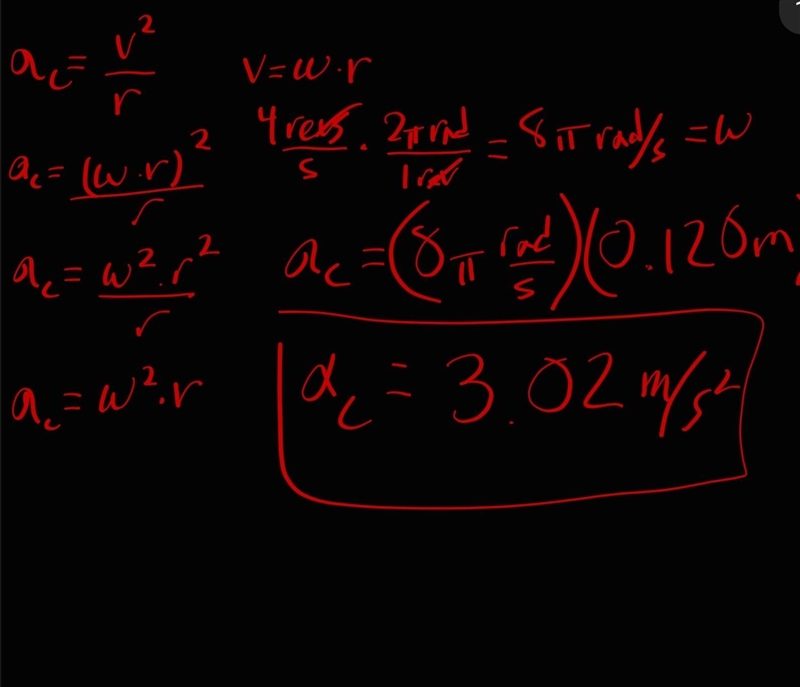 a_c = v²/r
v = ω · r
4 revs/s · 2π rad/1 rev = 8π rad/s = ω
a_c = (ω · r)²/r
a_c = ω² · r²/r
a_c = (8π rad/s)(0.120m)
a_c = ω² · r
a_c = 3.02 m/s²